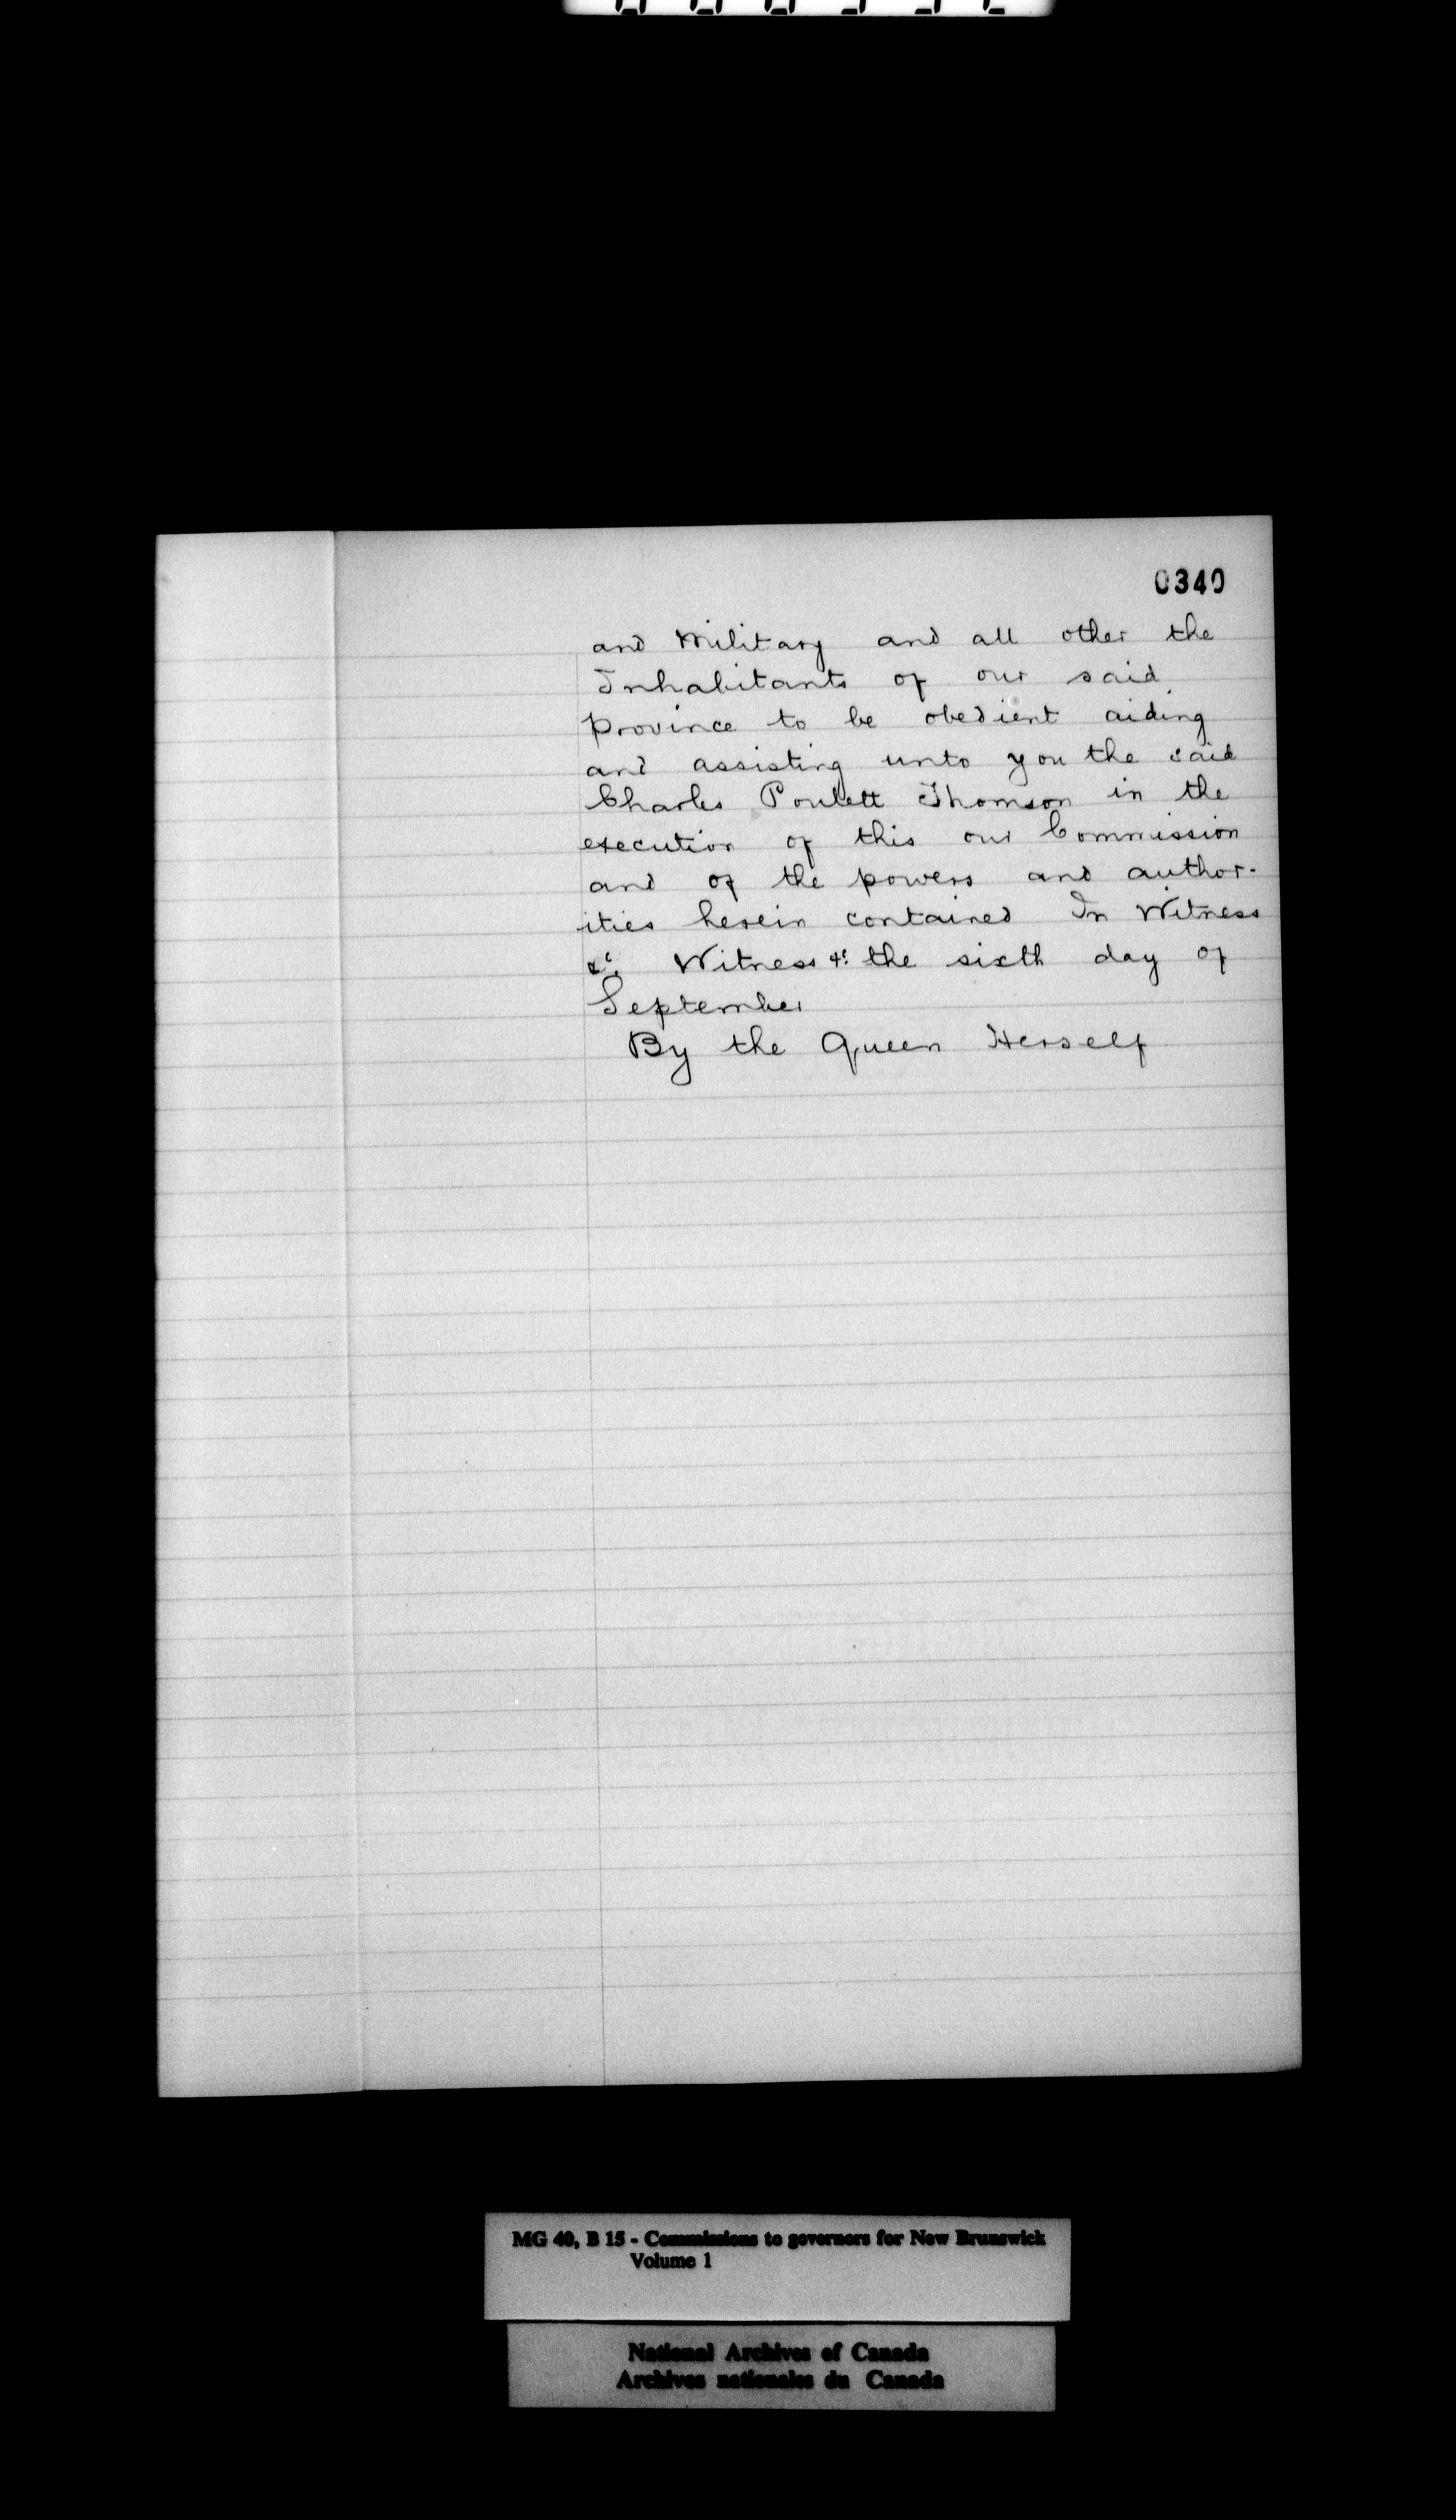 0340
and Military and all other the
Inhabitants of our said
province to be obedient aiding
and assisting unto you the said
Charles Poulett Thomson in the
execution of this our Commission
and of the powers and author-
ities herein contained In Witness
&c. Witness &c. the sixth day of
September
By the Queen Herself
MG 40, B 15 - Commissions to governors for New Brunswick
Volume 1
National Archives of Canada
Archives nationales du Canada